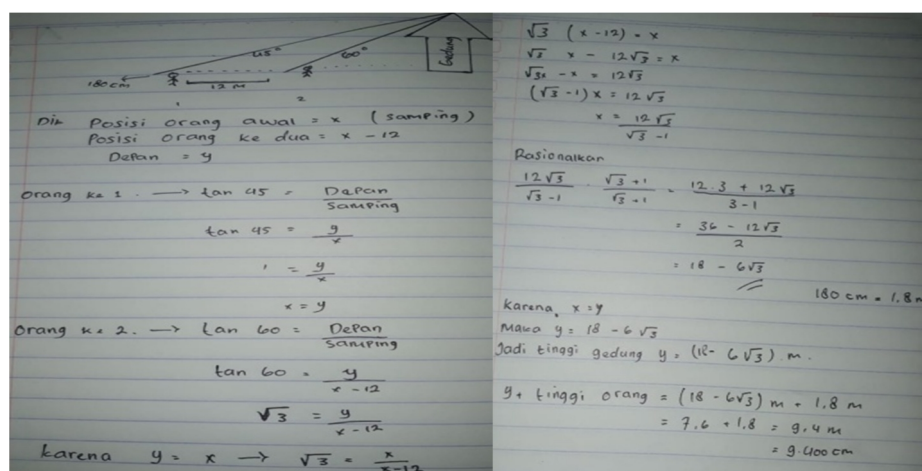 45°
60°
Gedung
180 cm
12 M
1
2
Dik Posisi orang awal = x (samping)
Posisi orang ke dua = x - 12
Depan = y
Orang ke 1. → tan 45 = Depan / Samping
tan 45 = y / x
1 = y / x
x = y
Orang ke 2. → tan 60 = Depan / Samping
tan 60 = y / x - 12
√3 = y / x - 12
karena y = x → √3 = x / x-12
√3 (x - 12) = x
√3 x - 12√3 = x
√3x - x = 12√3
(√3 - 1) x = 12√3
x = 12√3 / √3 - 1
Rasionalkan
12√3 / √3 - 1 . √3 + 1 / √3 + 1 = 12.3 + 12√3 / 3 - 1
= 36 - 12√3 / 2
= 18 - 6√3
180 cm = 1.8 m
Karena, x = y
Maka y = 18 - 6√3
Jadi tinggi gedung y = (18 - 6√3) m.
y + tinggi orang = (18 - 6√3) m + 1.8 m
= 7.6 + 1.8 = 9.4 m
= 9.400 cm